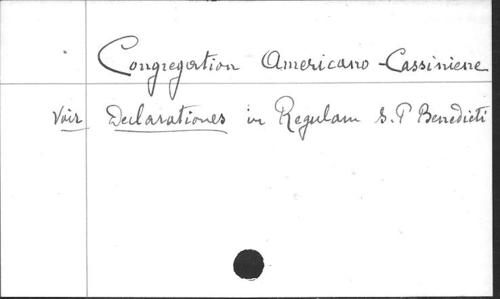 Congregation Americano-Cassiniene
Voir Declarationes in Regulam S. P Benedicti